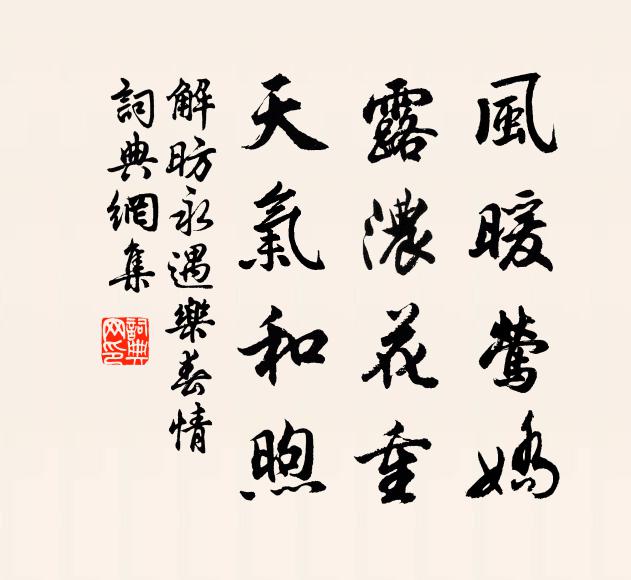 風暖鶯嬌
露濃花重
天氣和煦
解昉永遇樂春情
詞典網集
詞典網印